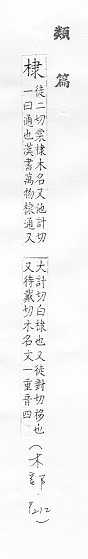 類篇
棣
徒二切䍡棣木名又他計切
一曰通也漢書萬物棣通又
大計切白棣也又徒對切栘也
又待戴切木名文一重音四
(木部